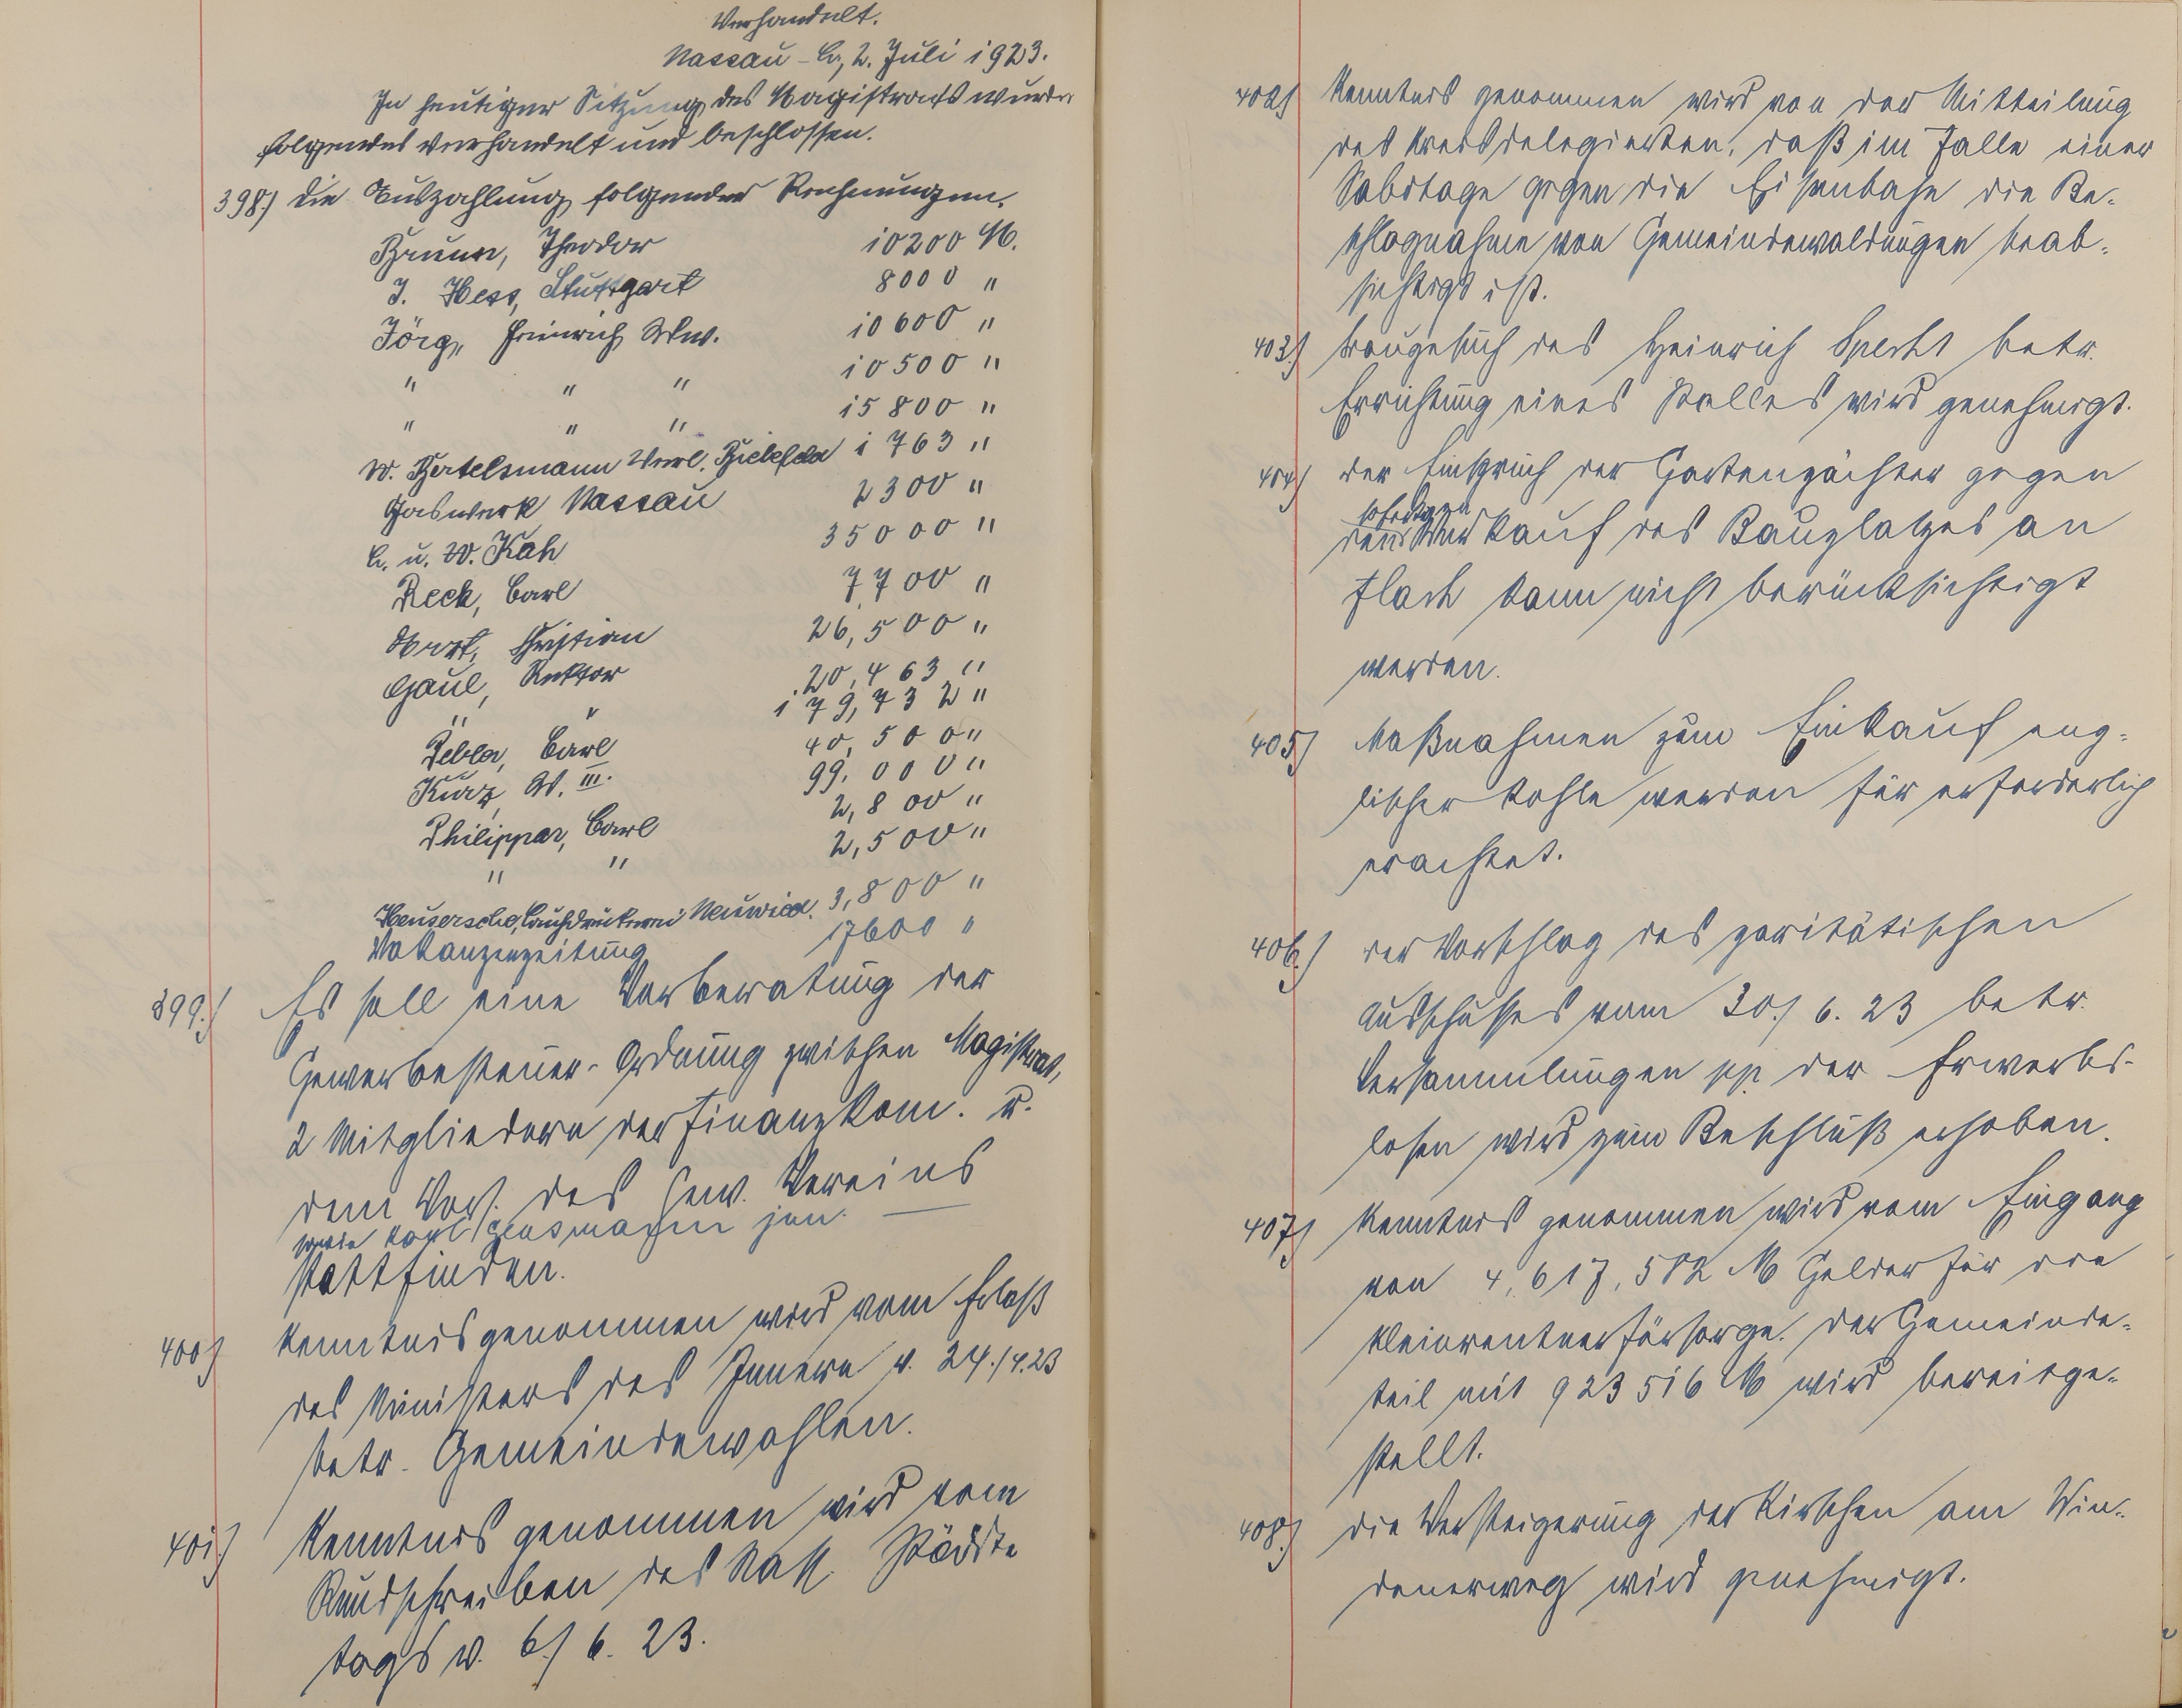 Verhandelt.
Nassau-L., 2. Juli 1923.
In heutiger Sitzung des Magistrats wurde
folgendes verhandelt und beschlossen.
398.) Die Auszahlung folgender Rechnungen.
Bruun, Theodor 10200 M.
J. Hess, Stuttgart 8000 "
Jörg, Heinrich Ww. 10600 "
" " " 10500 "
" " " 15800 "
W. Bertelsmann Verl. Bielefeld 1763 "
Gaswerk Nassau 2300 "
L. u. W. Kah 35000 "
Reck, Carl 7700 "
Christian 26,500 "
Gaul, Rektor 20,463 "
" " 179,732 "
Pebler, Carl 40,500 "
Kurz, W. III. 99,000 "
Philippar, Carl 2,800 "
" " 2,500 "
Heusersche Buchdruckerei Neuwied. 3,800 "
Vakanzenzeitung 17600 "
399.) Es soll eine Vorberatung der
Gewerbesteuer-Ordnung zwischen Magistrat,
2 Mitgliedern der Finanzkom. u.
dem Vorst. des Gew. Vereins
sowie Karl jun.
stattfinden.
400) Kenntnis genommen wird vom Erlaß
des Ministers des Innern v. 24./4.23
betr. Gemeindewahlen.
401.) Kenntnis genommen wird vom
Rundschreiben des Nass. Städte
tags v. 6./6. 23.
402) Kenntnis genommen wird von der Mitteilung
des Kreisdelegierten, daß im Falle einer
Sabotage gegen die Eisenbahn die Be-
schlagnahme von Gemeindewaldungen beab-
sichtigt ist.
403.) Baugesuch des Heinrich Specht betr.
Errichtung eines Stalles wird genehmigt.
404) Der Einspruch der Gartenpächter gegen
sofortigen
den Verkauf des Bauplatzes an
Flach kann nicht berücksichtigt
werden.
405) Maßnahmen zum Einkauf eng-
lischer Kohle werden für erforderlich
erachtet.
406.) Der Vorschlag des paritätischen
Ausschusses vom 30./6. 23 betr.
Versammlungen pp der Erwerbs-
losen wird zum Beschluß erhoben.
407) Kenntnis genommen wird vom Eingang
von 4,617,582 M Gelder für die
Kleinrentnerfürsorge. Der Gemeinde-
teil mit 923516 M wird bereitge-
stellt.
408.) Die Versteigerung der Kirschen am Win-
denerweg wird genehmigt.